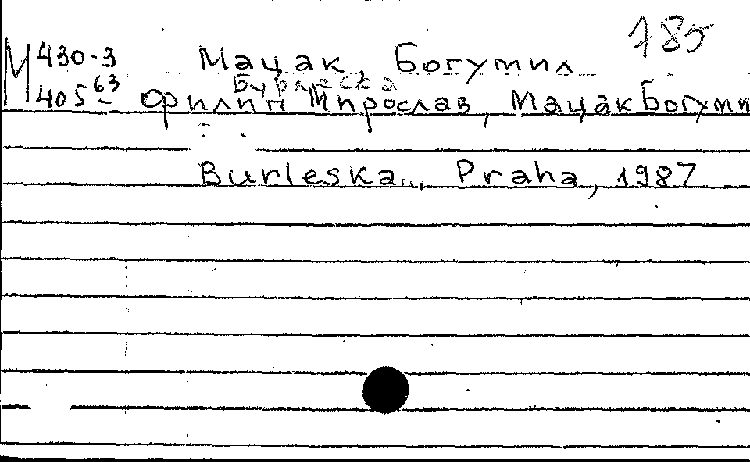 785
М 430-3 Мацак Богумил
Бурлеска
405 63 Филип Мирослав, Мацак Богуми
Burleska.., Praha, 1987